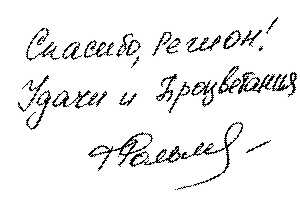 Спасибо, Регион!
Удачи и Процветания